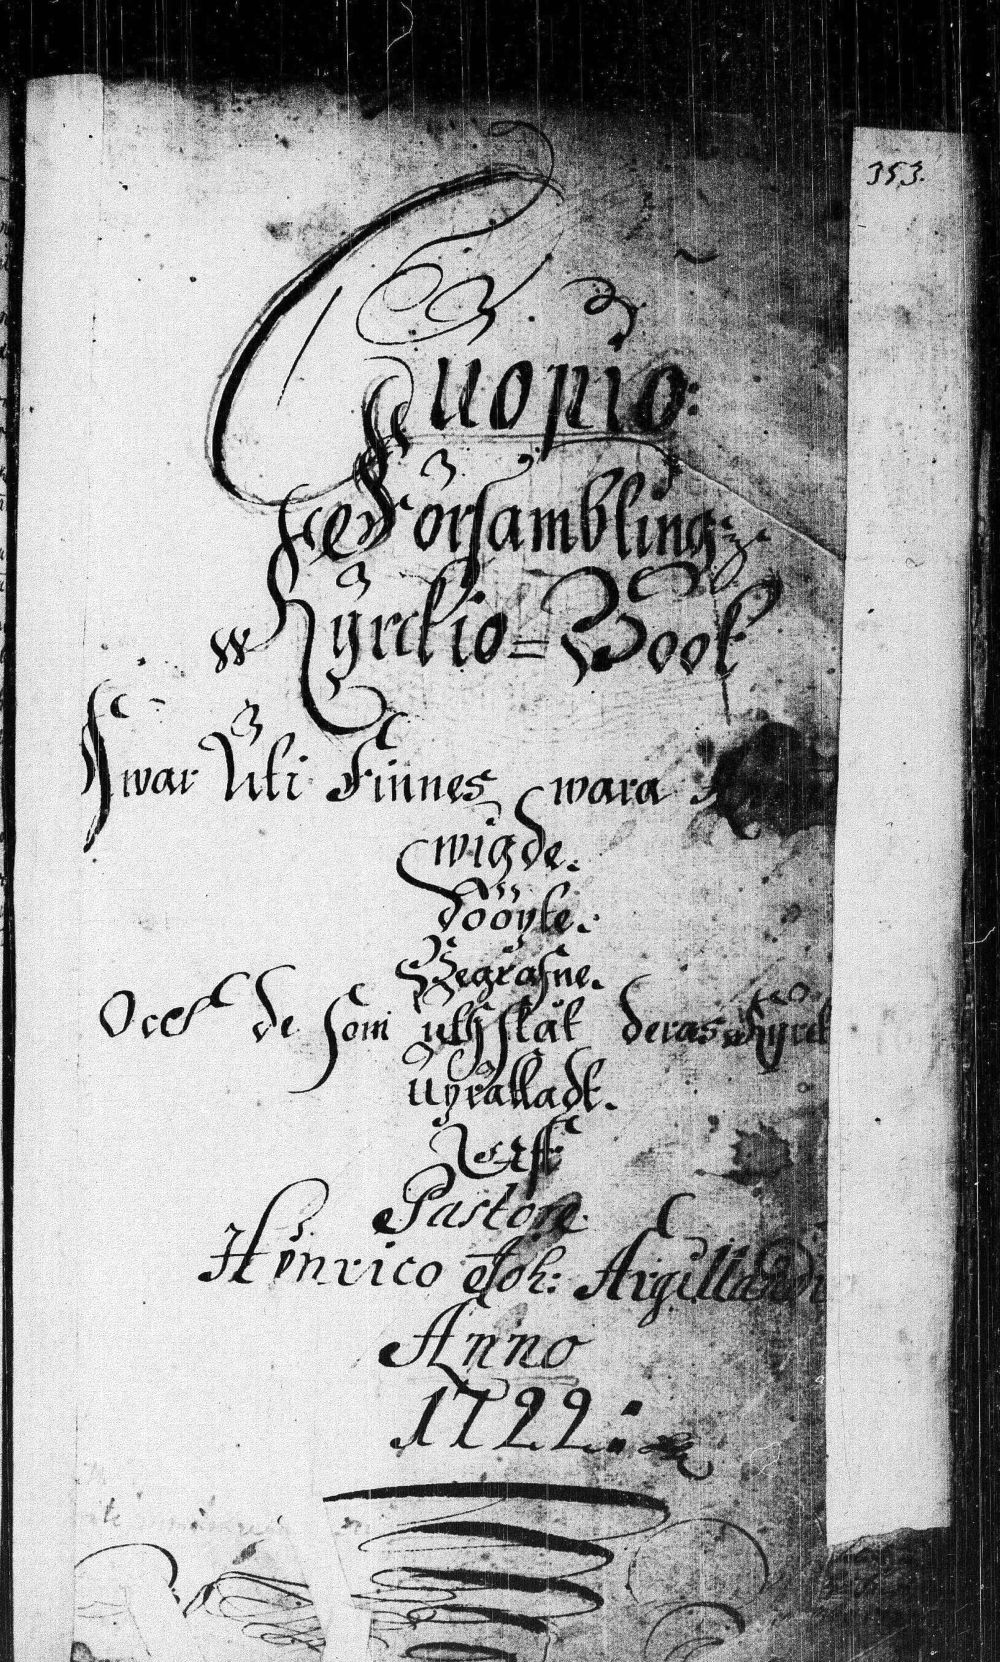 353.
Cuopio:
Församblingz
Kyrckio=Book
Hwar Uti Finnes wara
wigde.
Dööpte.
Begrafne.
Och de som uthj skät deras Kyrck
Uprättadt.
Aff
Pastore.
Henrico Joh: Argillandr
Anno
1722: